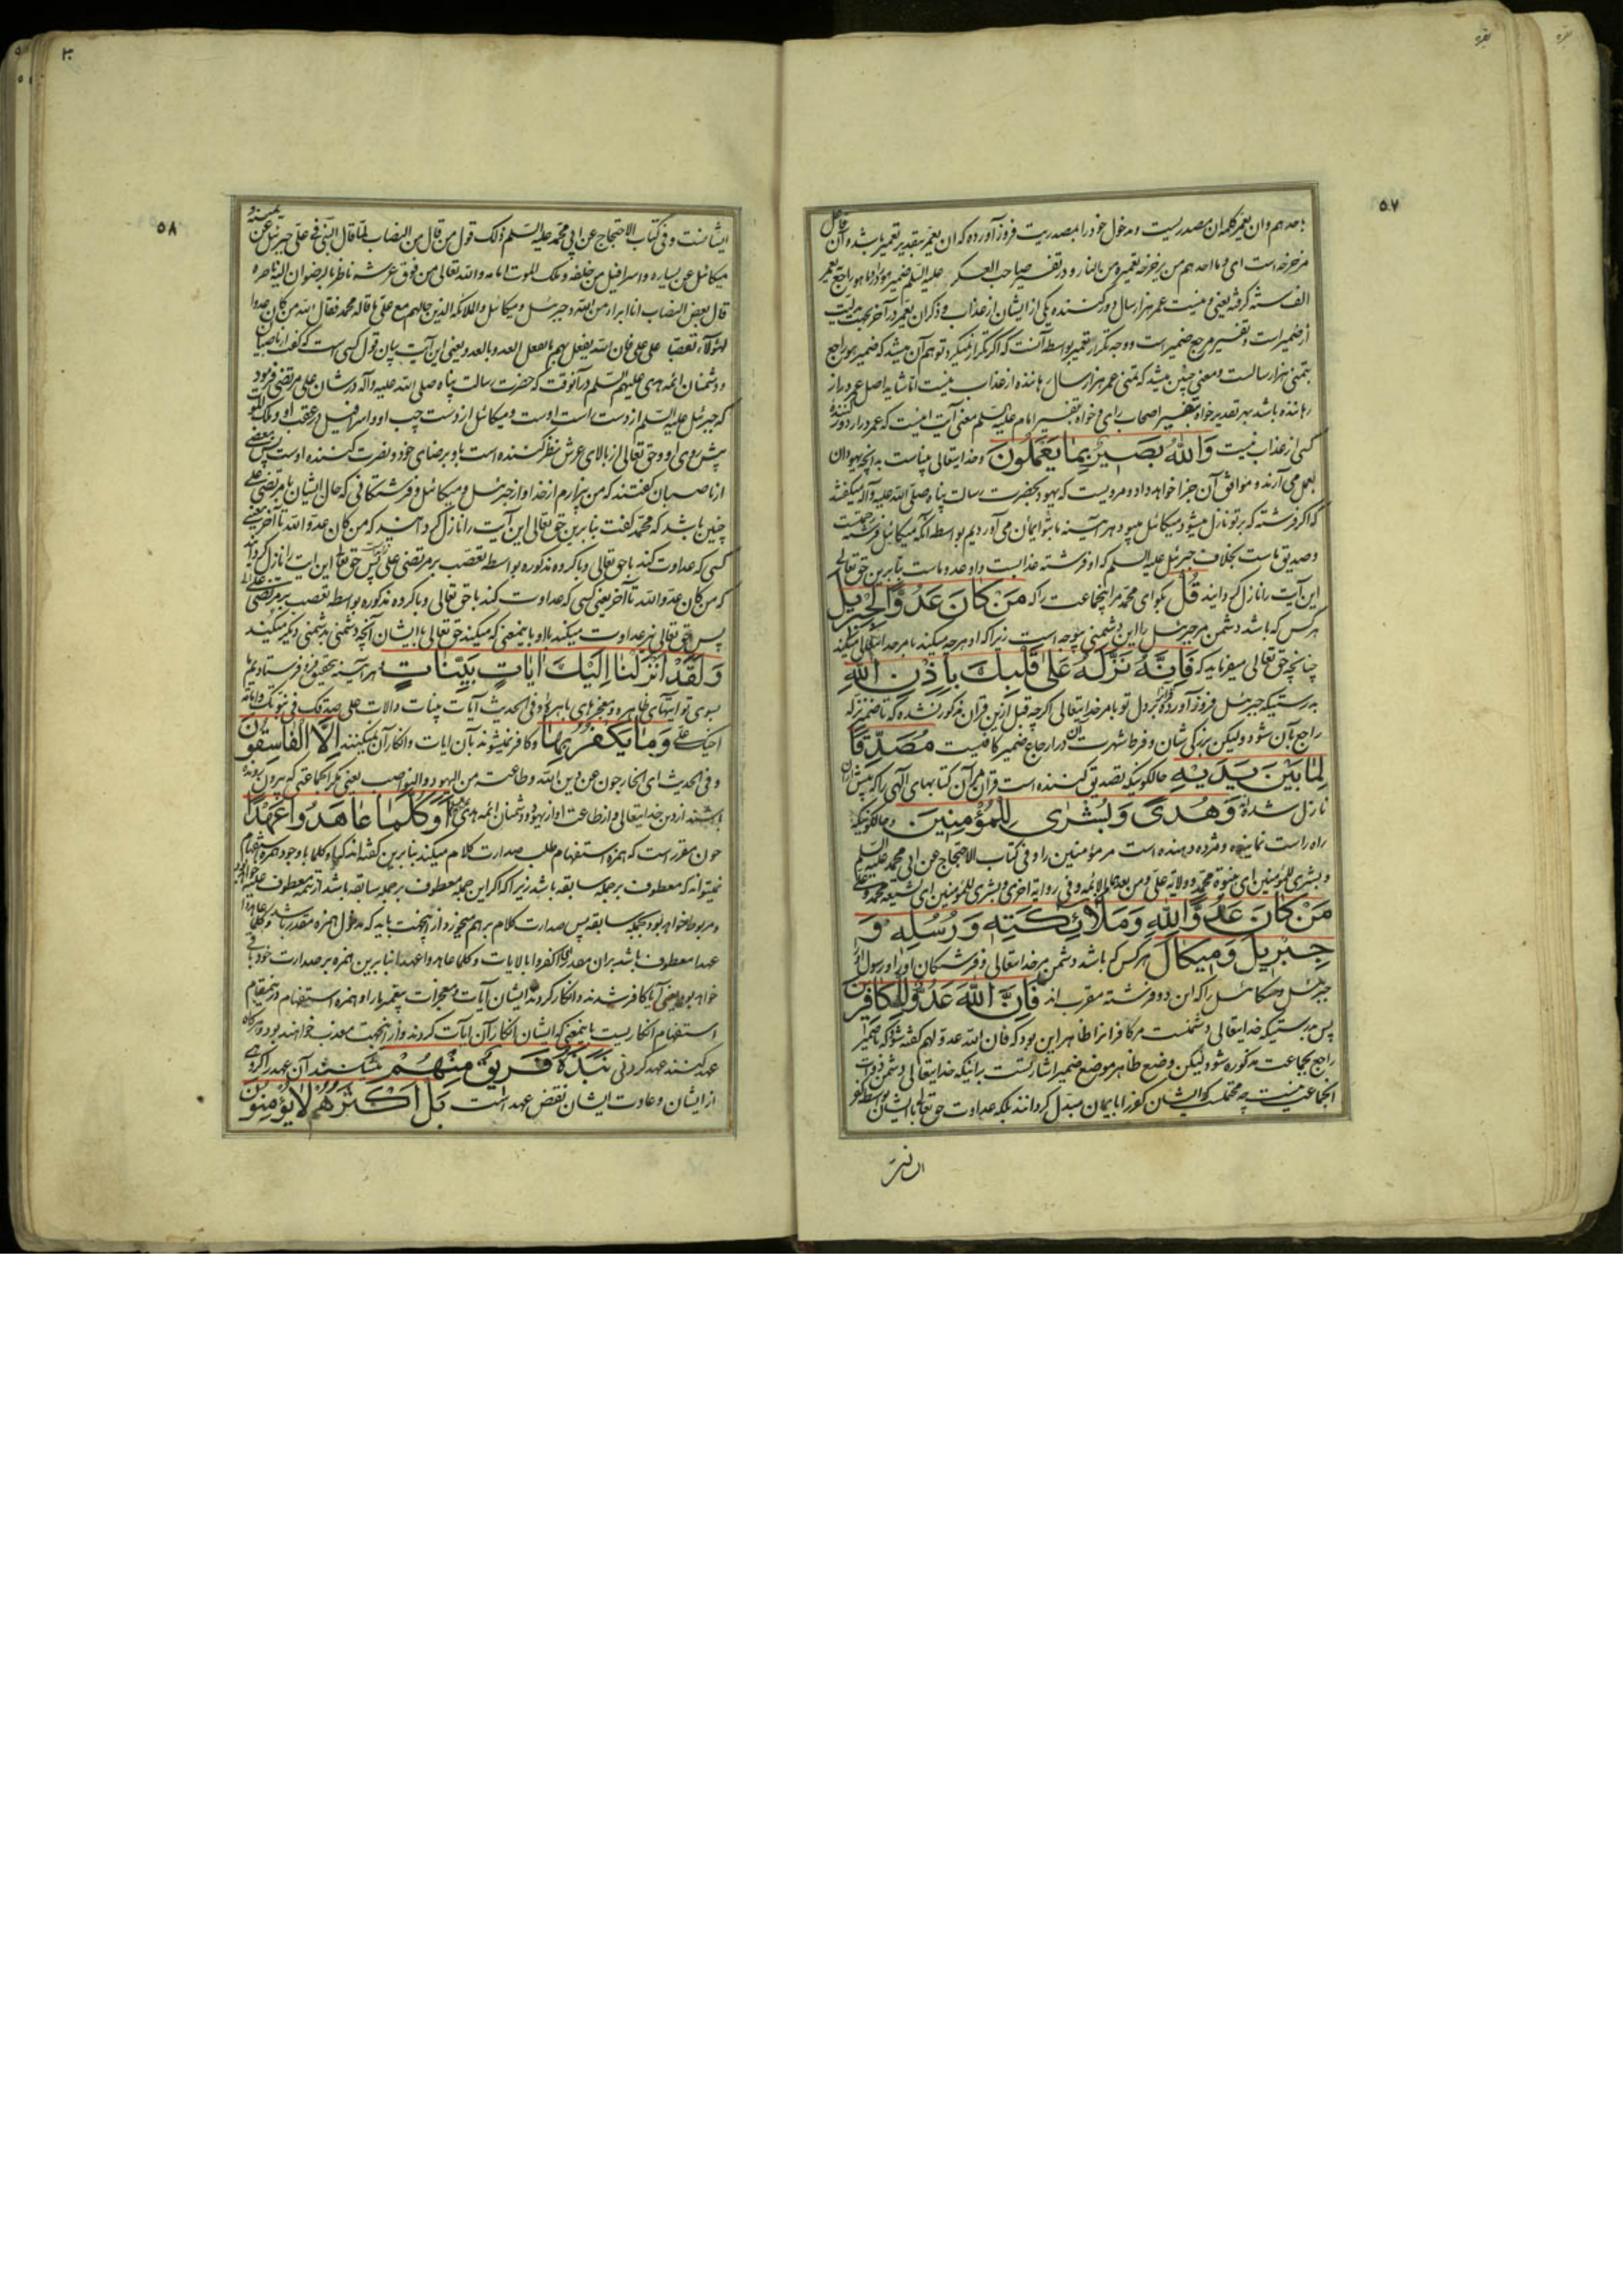 ۵۷
باحدهم وان یعمر کلمه ان مصدریست و مدخول خود را بمصدریت فروز آورده که ان یعمر بتقدیر تعمیر باشد و ان
مزحزحه است ای وما احدهم من یزحزحه تعمیره من النار و در تفسیر صاحب العسکر علیه السلم ضمیر هو
الف سنه گرفته یعنی و نیست عمر هزار سال دور کننده یکی از ایشان از عذاب و ذکر ان یعمر در آخر بجهت
از ضمیر است و تفسیر مرجع ضمیر است و وجه تکرار تعمیر بواسطه آنست که اگر تکرار نمیکرد توهم آن میشد که ضمیر هو راجع
بتمنی هزار سالست و معنی چنین میشد که تمنی عمر هزار سال رهاننده از عذاب نیست اما شاید اصل عمر دراز
رهاننده باشد بهر تقدیر خواه بتفسیر اصحاب رای و خواه بتفسیر امام علیه السلم معنی آیت اینست که عمر دراز دور کننده
کسی از عذاب نیست وَاللّٰهُ بَصِیرٌ بِمَا یَعْمَلُونَ و خدایتعالی بیناست به آنچه یهودان
بعمل می آرند و موافق آن جزا خواهد داد و مرویست که یهود بحضرت رسالت پناه صلی الله علیه وآله میگفتند
که اگر فرشته که بر تو نازل میشود میکائیل میبود هر آینه ما بتو ایمان می آوردیم بواسطه آنکه میکائیل فرشته رحمتست
و صدیق ماست بخلاف جبرئیل علیه السلم که او فرشته عذابست و او عدو ماست بنابرین حق تعالی
این آیت را نازل گردانید قُلْ بگو ای محمد مر اینجماعت را که مَنْ کَانَ عَدُوًّا لِجِبْرِیلَ
هر کس که باشد دشمن مر جبرئیل را این دشمنی بیوجه است زیرا که او هرچه میکند بامر خدایتعالی میکند
چنانچه حق تعالی میفرماید که فَاِنَّهُ نَزَّلَهُ عَلٰی قَلْبِكَ بِاِذْنِ اللّٰهِ
بدرستیکه جبرئیل فروز آورده قرانرا بر دل تو بامر خدایتعالی اگرچه قبل ازین قران مذکور نشده که تا ضمیر نزله
راجع بآن شود ولیکن بزرگی شان و فرط شهرت آن در ارجاع ضمیر کافیست مُصَدِّقًا
لِمَا بَیْنَ یَدَیْهِ حالکونیکه تصدیق کننده است قران مر آن کتابهای الهی را که پیش ازان
نازل شده وَهُدًی وَبُشْرٰی لِلْمُؤْمِنِینَ و حالکونیکه
راه راست نماینده و مژده دهنده است مر مؤمنین را و فی کتاب الاحتجاج عن ابی محمد علیه السلم
وبشری للمؤمنین ای بنبوة محمد وولایة علی ومن بعدهما الائمه وفی روایة اخری وبشری للمؤمنین ای لشیعة محمد وعلی
مَنْ کَانَ عَدُوًّا لِلّٰهِ وَمَلٰائِکَتِهِ وَرُسُلِهِ وَ
جِبْرِیلَ وَمِیکَالَ هر کس که باشد دشمن مر خدایتعالی و فرشتکان او را و رسول او را
جبرئیل و میکائیل را که این دو فرشته مقرب اند فَاِنَّ اللّٰهَ عَدُوٌّ لِلْکَافِرِینَ
پس بدرستیکه خدایتعالی دشمنست مر کافرانرا ظاهر این بود که فان الله عدو لهم گفته شود که تا ضمیر
راجع بجماعت مذکوره شود لیکن وضع ظاهر موضع ضمیر اشارتست برانیکه خدایتعالی دشمن ذوات
انجماعت نیست چه محتملست که ایشان کفر را بایمان مبدل گردانند بلکه عداوت حق تعالی با ایشان بواسطه کفر
۵۸
ایشانست و فی کتاب الاحتجاج عن ابی محمد علیه السلم ذلك قول من قال من النصاب لما قال النبی فی علی جبرئیل عن یمینه و
میکائیل عن یساره و اسرافیل من خلفه و ملك الموت امامه و الله تعالی من فوق عرشه ناظر بالرضوان الیه ناصره
قال بعض النصاب انا ابرأ من الله و جبرئیل و میکائیل و الملائکة الذین حالهم مع علی ما قاله محمد فقال الله من کان عدوا
لهؤلاء تعصبا علی علی فان الله یفعل بهم ما یفعل العدو بالعدو یعنی این آیت بیان قول کسی است که گفت از ناصبیان
و دشمنان ائمه هدی علیهم السلم در آنوقت که حضرت رسالت پناه صلی الله علیه وآله در شان علی مرتضی فرمود
که جبرئیل علیه السلم از دست راست اوست و میکائیل از دست چپ او و اسرافیل در عقب او و ملك الموت
پیش روی او و حق تعالی از بالای عرش نظر کننده است باو برضای خود و نصرت کننده اوست پس بعضی
از ناصبیان گفتند که من بیزارم از خدا و از جبرئیل و میکائیل و فرشتکانی که حال ایشان با مرتضی علی
چنین باشد که محمد گفت بنابرین حق تعالی این آیت را نازل گردانید که من کان عدوا لله تا آخر یعنی
کسی که عداوت کند با حق تعالی و با گروه مذکوره بواسطه تعصب بر مرتضی علی پس حق تعالی این ایت را نازل گردانید
که من کان عدوا لله تا آخر یعنی کسی که عداوت کند با حق تعالی و با گروه مذکوره بواسطه تعصب بر مرتضی علی
پس حق تعالی نیز عداوت میکند با او باینمعنی که میکند حق تعالی با ایشان آنچه دشمنی بدشمنی دیگر میکند
وَلَقَدْ اَنْزَلْنَا اِلَیْكَ اٰیَاتٍ بَیِّنَاتٍ هر آینه بتحقیق فرو فرستادیم ما
بسوی تو ایتهای ظاهره و معجزهای باهره و فی الحدیث آیات بینات دالات علی صدقك فی نبوتك و امامة
اخیك علی وَمَا یَکْفُرُ بِهَا و کافر نمیشوند بآن ایات و انکار آن نمیکنند اِلَّا الْفَاسِقُونَ
و فی الحدیث ای الخارجون عن دین الله و طاعته من الیهود و النواصب یعنی مگر انجماعتی که بیرون رونده
باشند از دین خدایتعالی و از طاعت او از یهود و دشمنان ائمه هدی اَوَکُلَّمَا عَاهَدُوا عَهْدًا
چون مقرر است که همزه استفهام طلب صدارت کلام میکند بنابرین گفته اند که او کلما با وجود همزه استفهام
نمیتواند که معطوف بر جمله سابقه باشد زیرا که اگر این جمله معطوف بر جمله سابقه باشد تتمه معطوف علیه خواهد بود
و مربوط خواهد بود بجمله سابقه پس صدارت کلام برهم میخورد از اینجهت باید که مدخول همزه مقدر باشد و کلما عاهدوا
عهدا معطوف باشد بران مقدر ای اکفروا بالایات و کلما عاهدوا عهدا بنابرین همزه بر صدارت خود باقی
خواهد بود یعنی آیا کافر شدند و انکار کردند ایشان آیات و معجزات پیغمبر ما را و همزه استفهام درینمقام
استفهام انکاریست باینمعنی که ایشان انکار آن ایات کردند و از اینجهت معذب خواهند بود و هرگاه
عهد کنند عهد کردنی نَبَذَهُ فَرِیقٌ مِنْهُمْ بشکنند آن عهد را گروهی
از ایشان و عادت ایشان نقض عهد است بَلْ اَکْثَرُهُمْ لَا یُؤْمِنُونَ